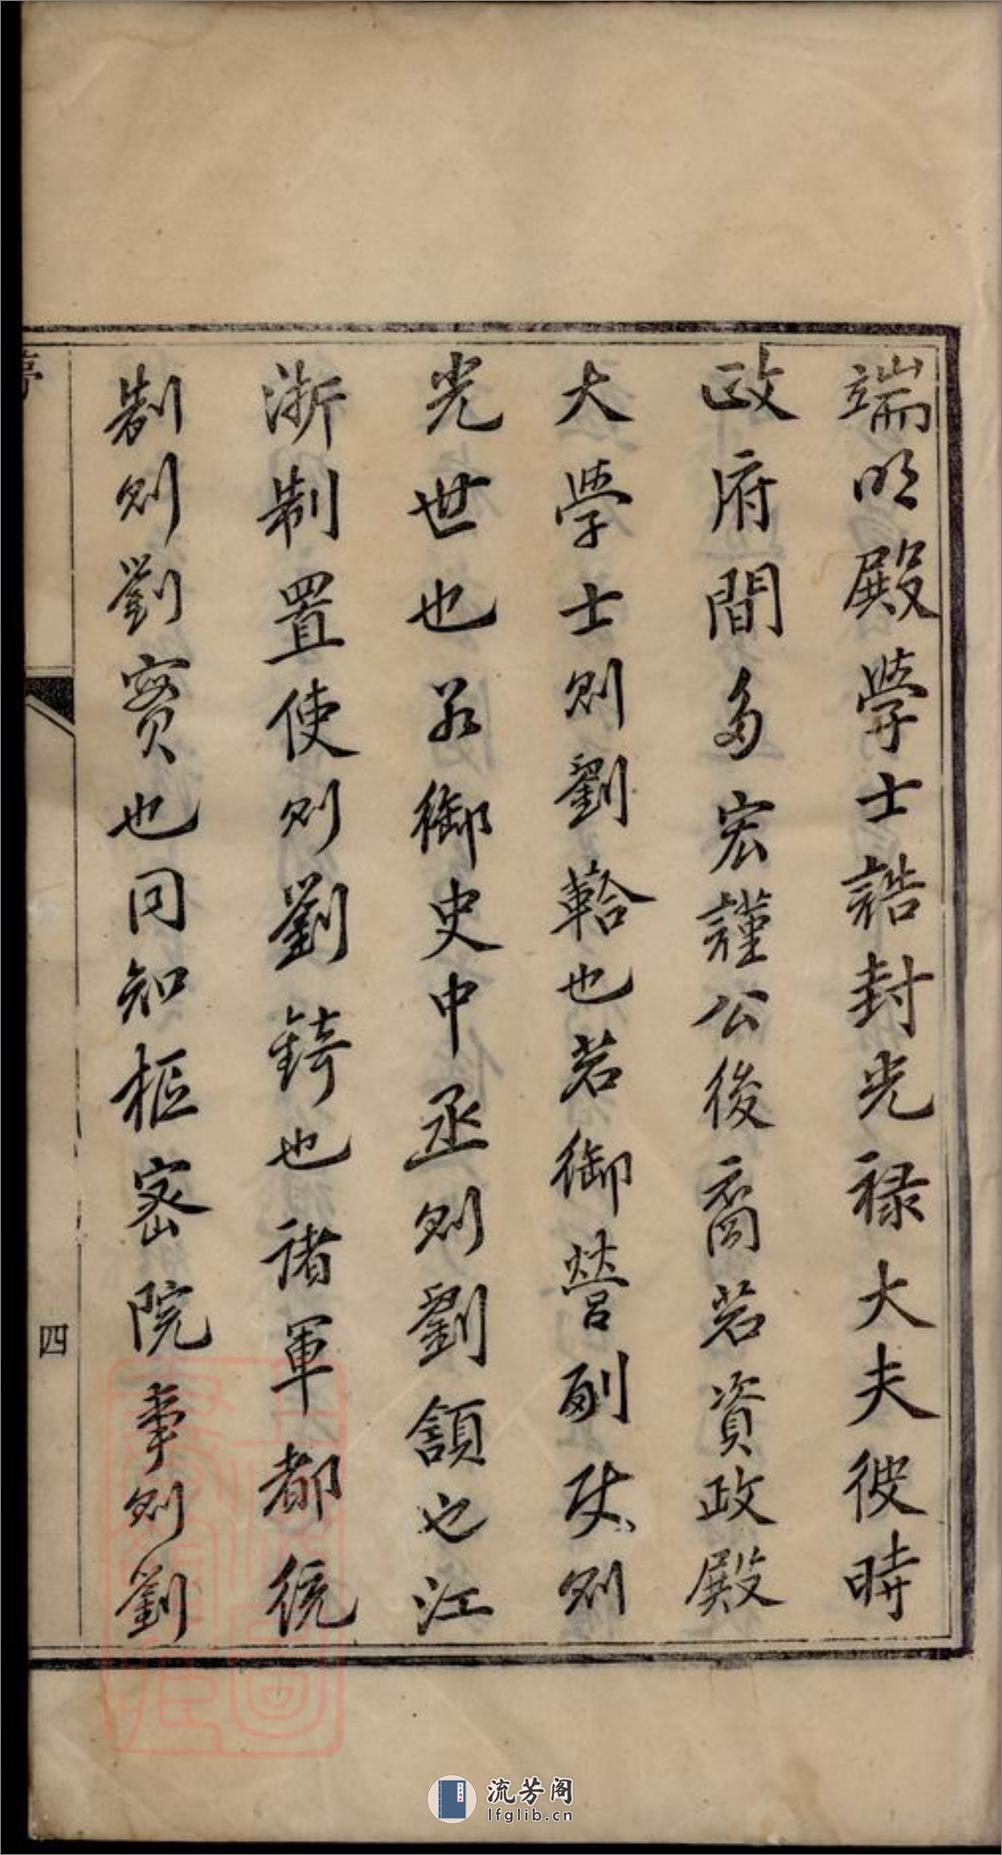 端明殿學士誥封光祿大夫彼時
政府間多宏謹公後裔若資政殿
大學士則劉韐也若御營副使則劉
光世也若御史中丞則劉頷也江
浙制置使則劉錡也諸軍都統
制則劉寳也同知樞密院事則劉
四
流芳阁
lfglib.cn